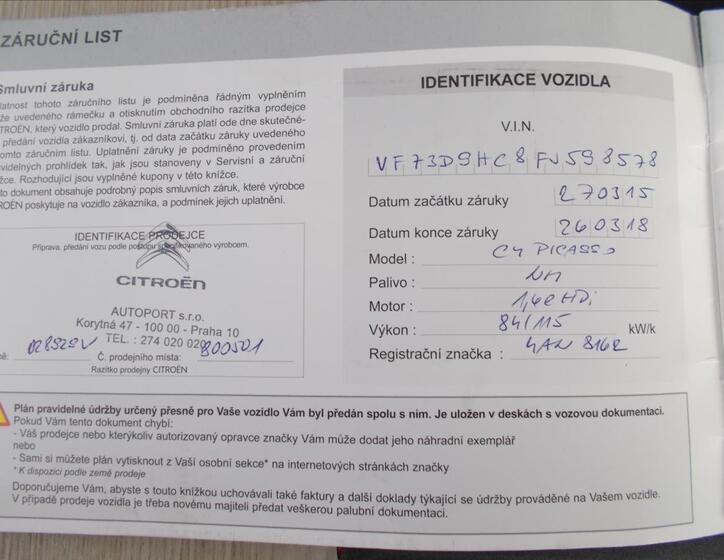 ZÁRUČNÍ LIST
Smluvní záruka
latnost tohoto záručního listu je podmíněna řádným vyplněním
že uvedeného rámečku a otisknutím obchodního razítka prodejce
TROËN, který vozidlo prodal. Smluvní záruka platí ode dne skutečné-
předání vozidla zákazníkovi, tj. od data začátku záruky uvedeného
omto záručním listu. Uplatnění záruky je podmíněno provedením
videlných prohlídek tak, jak jsou stanoveny v Servisní a záruční
žce. Rozhodující jsou vyplněné kupony v této knížce.
to dokument obsahuje podrobný popis smluvních záruk, které výrobce
ROËN poskytuje na vozidlo zákazníka, a podmínek jejich uplatnění.
IDENTIFIKACE PRODEJCE
Příprava, předání vozu podle postupu specifikovaného výrobcem.
CITROËN
AUTOPORT s.r.o.
Korytná 47 - 100 00 - Praha 10
TEL. : 274 020 020
028929V
800501
ně:
Č. prodejního místa:
Razítko prodejny CITROËN
IDENTIFIKACE VOZIDLA
V.I.N.
VF73D9HC8FJ598578
Datum začátku záruky 270315
Datum konce záruky 260318
Model : C4 PICASSO
Palivo : NM
Motor : 1,6e HDi
Výkon : 84/115 kW/k
Registrační značka : 4AN 8162
Plán pravidelné údržby určený přesně pro Vaše vozidlo Vám byl předán spolu s ním. Je uložen v deskách s vozovou dokumentací.
Pokud Vám tento dokument chybí:
- Váš prodejce nebo kterýkoliv autorizovaný opravce značky Vám může dodat jeho náhradní exemplář
nebo
- Sami si můžete plán vytisknout z Vaší osobní sekce* na internetových stránkách značky
* K dispozici podle země prodeje
Doporučujeme Vám, abyste s touto knížkou uchovávali také faktury a další doklady týkající se údržby prováděné na Vašem vozidle.
V případě prodeje vozidla je třeba novému majiteli předat veškerou palubní dokumentaci.